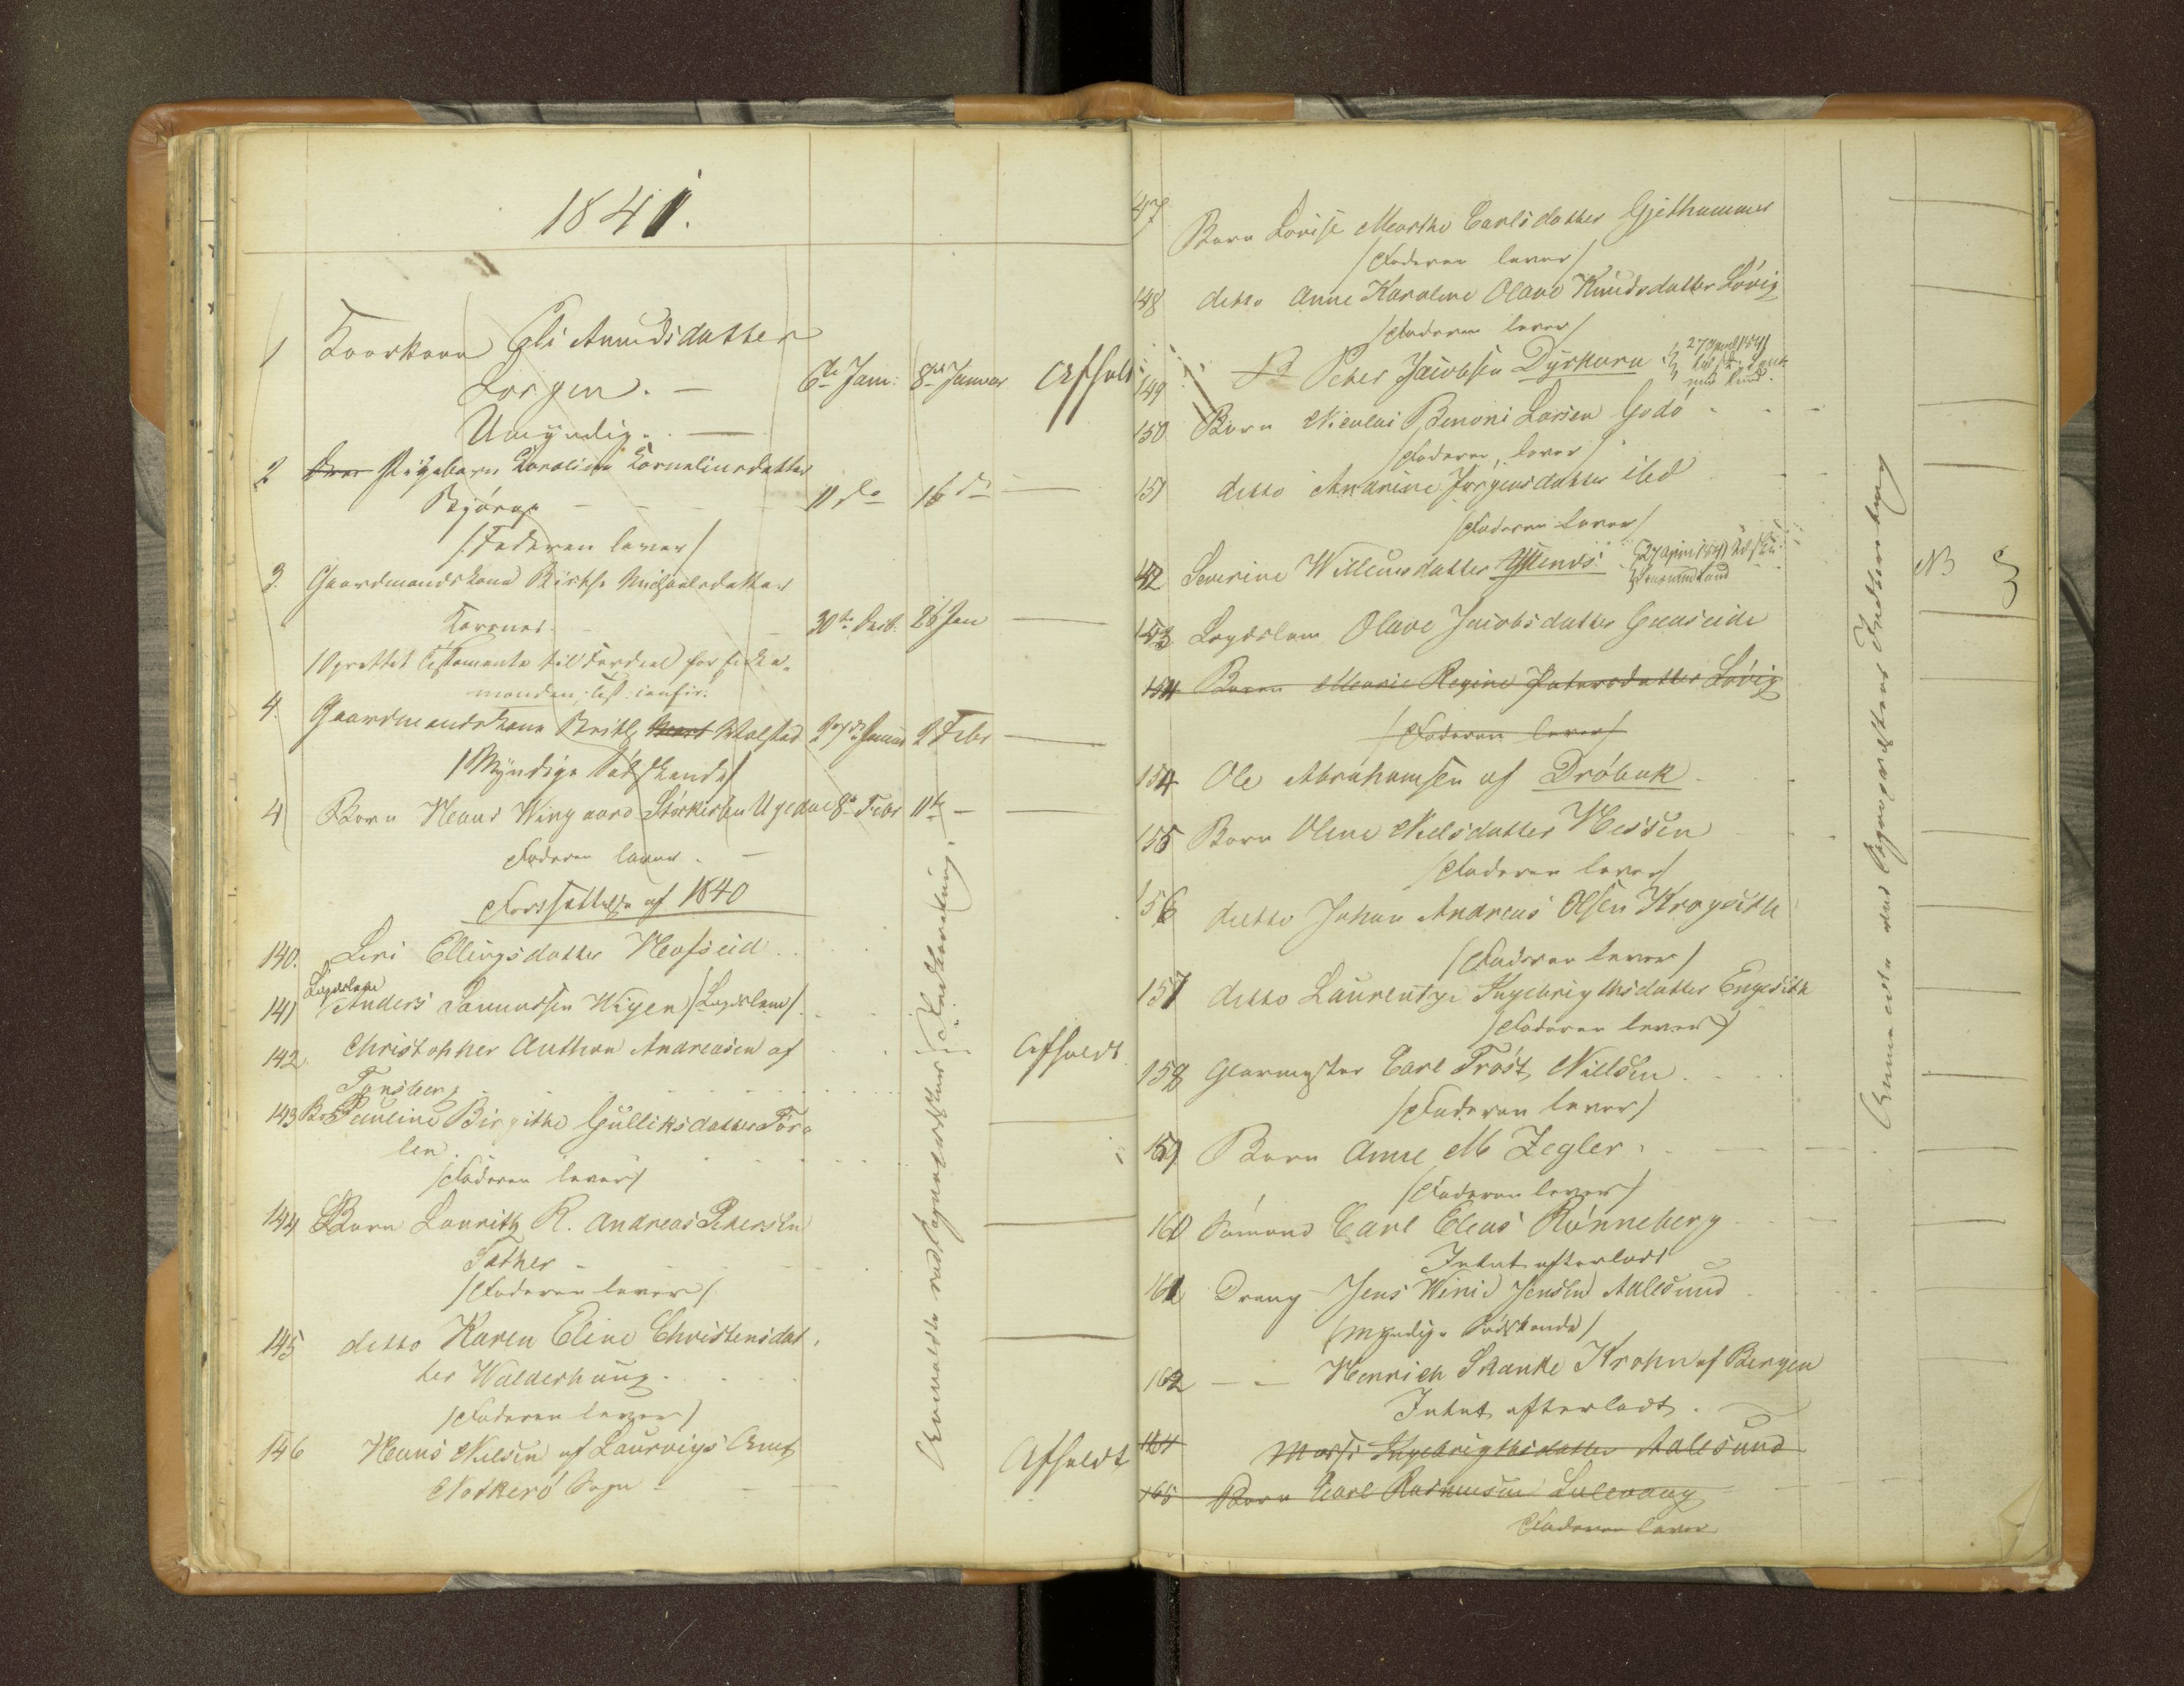 1841.
1 Kaarkone Eli Amundsdatter
Lorgen. — 6te Janr: 8de Januar Afholdt
Umyndig. —
2 Pigebarn Karoline Korneliusdatter
Bjørge - - - 11 do 16 do —
/Faderen lever/
3. Gaardmandskone Birthe Michaelsdatter
Korsnes. 30te Decb. 26 Jan —
/Oprettet Testamente til Fordeel for Enke-
manden, Test: confir:
4. Gaardmandskone Brithe Walstad 27de Januar 2 Febr —
/Myndige Sødskende/
4 Barn Hans Wingaard Størkersen Ugedal 8de Febr 11te — —
Faderen lever. —
Fortsættelse af 1840
140. Siri Ellingsdatter Hofseid . .
Lægdslem
141 Anders Samuelsen Wigen /Lægdslem/
142 Christopher Anthon Andreasen af Afholdt
Tønsberg
143 Bn Pauline Birgithe Gulliksdatter Tør-
len.
/Faderen lever/
144 Barn Lauritz R. Andreas Petersen
Sæther -
/Faderen lever/
145 ditto Karen Eline Christensdat-
ter Walderhoug . .
/Faderen lever/
146 Hans Nielsen af Laurvigs Amt Afholdt
Nøtterø Sogn -
Anmeldte ved Sognepræstens Indberetning.
47 Barn Lovise Marthe Carlsdatter Gjethammer
/Faderen lever/
148 ditto Anne Karoline Olave Knudsdatter Løvig
/Faderen lever/
149 Peter Jacobsen Dyrkorn 27 April 1841
150 Barn Nicolai Benoni Larsen Godø - -
/Faderen lever/
151 ditto Andrine Jørgensdatter ibd
/Faderen lever/
152 Severine Willumsdatter 27 April 1841
153 Lægdslem Olave Jacobsdatter Graseide
154 Barn Marie Regine Petersdatter Løvig
/Faderen lever/
154 Ole Abrahamsen af Drøbak
155 Barn Oline Nielsdatter Hessen
/Faderen lever/
156 ditto Johan Andreas Olsen Krogsæth
/Faderen lever/
157 ditto Laurentze Ingebrigthsdatter Engesæth
/Faderen lever/
158 Glarmester Carl Frost Nielsen
/Faderen lever/
159 Barn Anne M Zegler.
/Faderen lever/
160 Sømand Carl Elias Rønneberg
Intet efterladt
161 Dreng Jens Winid Jensen Aalesund
/Myndige Sødskende/
162 — — Henrich Skanke Krohn af Bergen
Intet efterladt.
164 Marthe Ingebrigthsdatter Aalesund
165 Barn Carl Rasmusen Lillevaag
Faderen lever
Anmeldte ved Sognepræstens Indberetning
NB